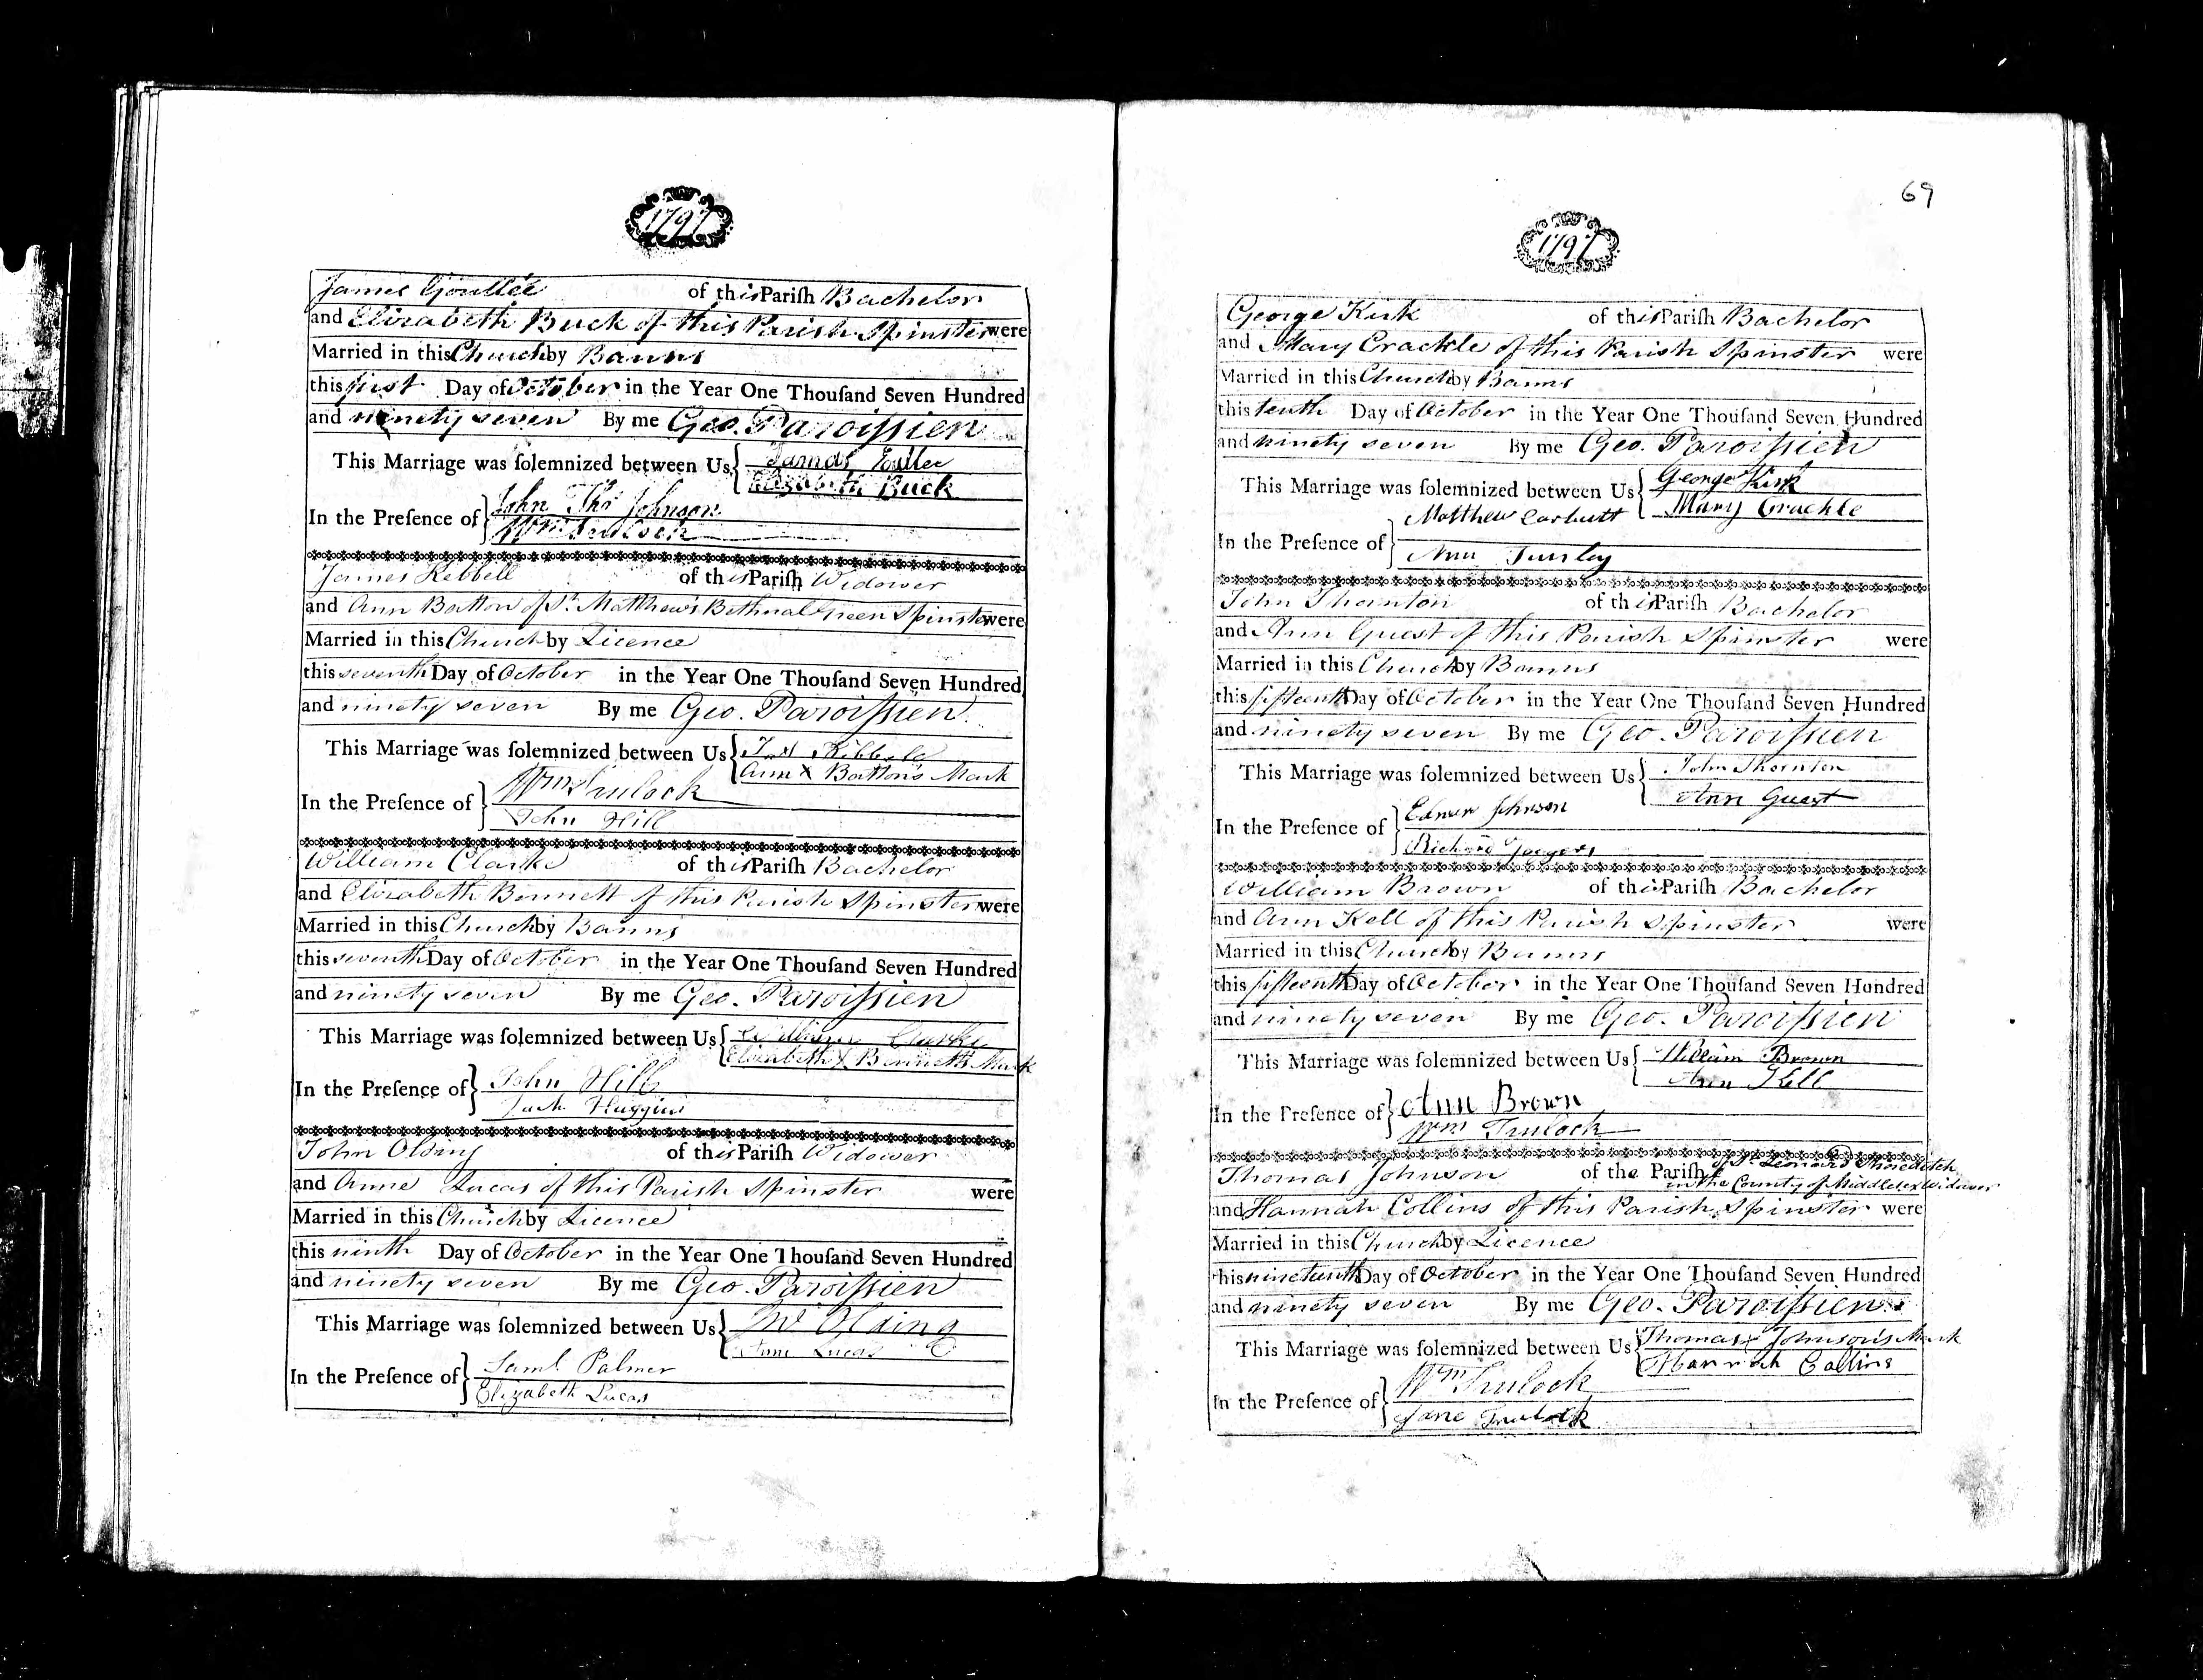 1797
James Goullée of this Pariſh Bachelor
and Elizabeth Buck of this Parish Spinster were
Married in this Church by Banns
this first Day of October in the Year One Thouſand Seven Hundred
and ninety seven By me Geo. Paroiſsien
This Marriage was ſolemnized between Us James
Elizabeth Buck
In the Preſence of John Thos Johnson
Wm Trulock
James Kebbell of this Pariſh Widower
and Ann Batton of St. Matthew's Bethnal Green Spinster were
Married in this Church by Licence
this seventh Day of October in the Year One Thouſand Seven Hundred
and ninety seven By me Geo. Paroiſsien
This Marriage was ſolemnized between Us
Ann X Batton's Mark
In the Preſence of Wm Trulock
John Hill
William Clarke of this Pariſh Bachelor
and Elizabeth Bennett of this Parish Spinster were
Married in this Church by Banns
this seventh Day of October in the Year One Thouſand Seven Hundred
and ninety seven By me Geo. Paroiſsien
This Marriage was ſolemnized between Us William Clarke
Elizabeth X Bennett's Mark
In the Preſence of John Hill
Huggins
John Olding of this Pariſh Widower
and Anne Lucas of this Parish Spinster were
Married in this Church by Licence
this ninth Day of October in the Year One Thouſand Seven Hundred
and ninety seven By me Geo. Paroiſsien
This Marriage was ſolemnized between Us Jno Olding
Lucas
In the Preſence of Saml. Palmer
Elizabeth Lucas
69
1797
George Kirk of this Pariſh Bachelor
and Mary Crackle of this Parish Spinster were
Married in this Church by Banns
this tenth Day of October in the Year One Thouſand Seven Hundred
and ninety seven By me Geo. Paroiſsien
This Marriage was ſolemnized between Us George Kirk
Mary Crackle
In the Preſence of Matthew Corbutt
Ann
John Thornton of this Pariſh Bachelor
and Ann Guest of this Parish Spinster were
Married in this Church by Banns
this fifteenth Day of October in the Year One Thouſand Seven Hundred
and ninety seven By me Geo. Paroiſsien
This Marriage was ſolemnized between Us John Thornton
Ann Guest
In the Preſence of Johnson
Richard
William Brown of this Pariſh Bachelor
and Ann Kell of this Parish Spinster were
Married in this Church by Banns
this fifteenth Day of October in the Year One Thouſand Seven Hundred
and ninety seven By me Geo. Paroiſsien
This Marriage was ſolemnized between Us William Brown
Ann Kell
In the Preſence of Ann Brown
Wm Trulock
Thomas Johnson of the Pariſh of St. Leonard Shoreditch
in the County of Middlesex Widower
and Hannah Collins of this Parish Spinster were
Married in this Church by Licence
this nineteenth Day of October in the Year One Thouſand Seven Hundred
and ninety seven By me Geo. Paroiſsien
This Marriage was ſolemnized between Us Thomas X Johnson's Mark
Hannah Collins
In the Preſence of Wm Trulock
Jane Trulock